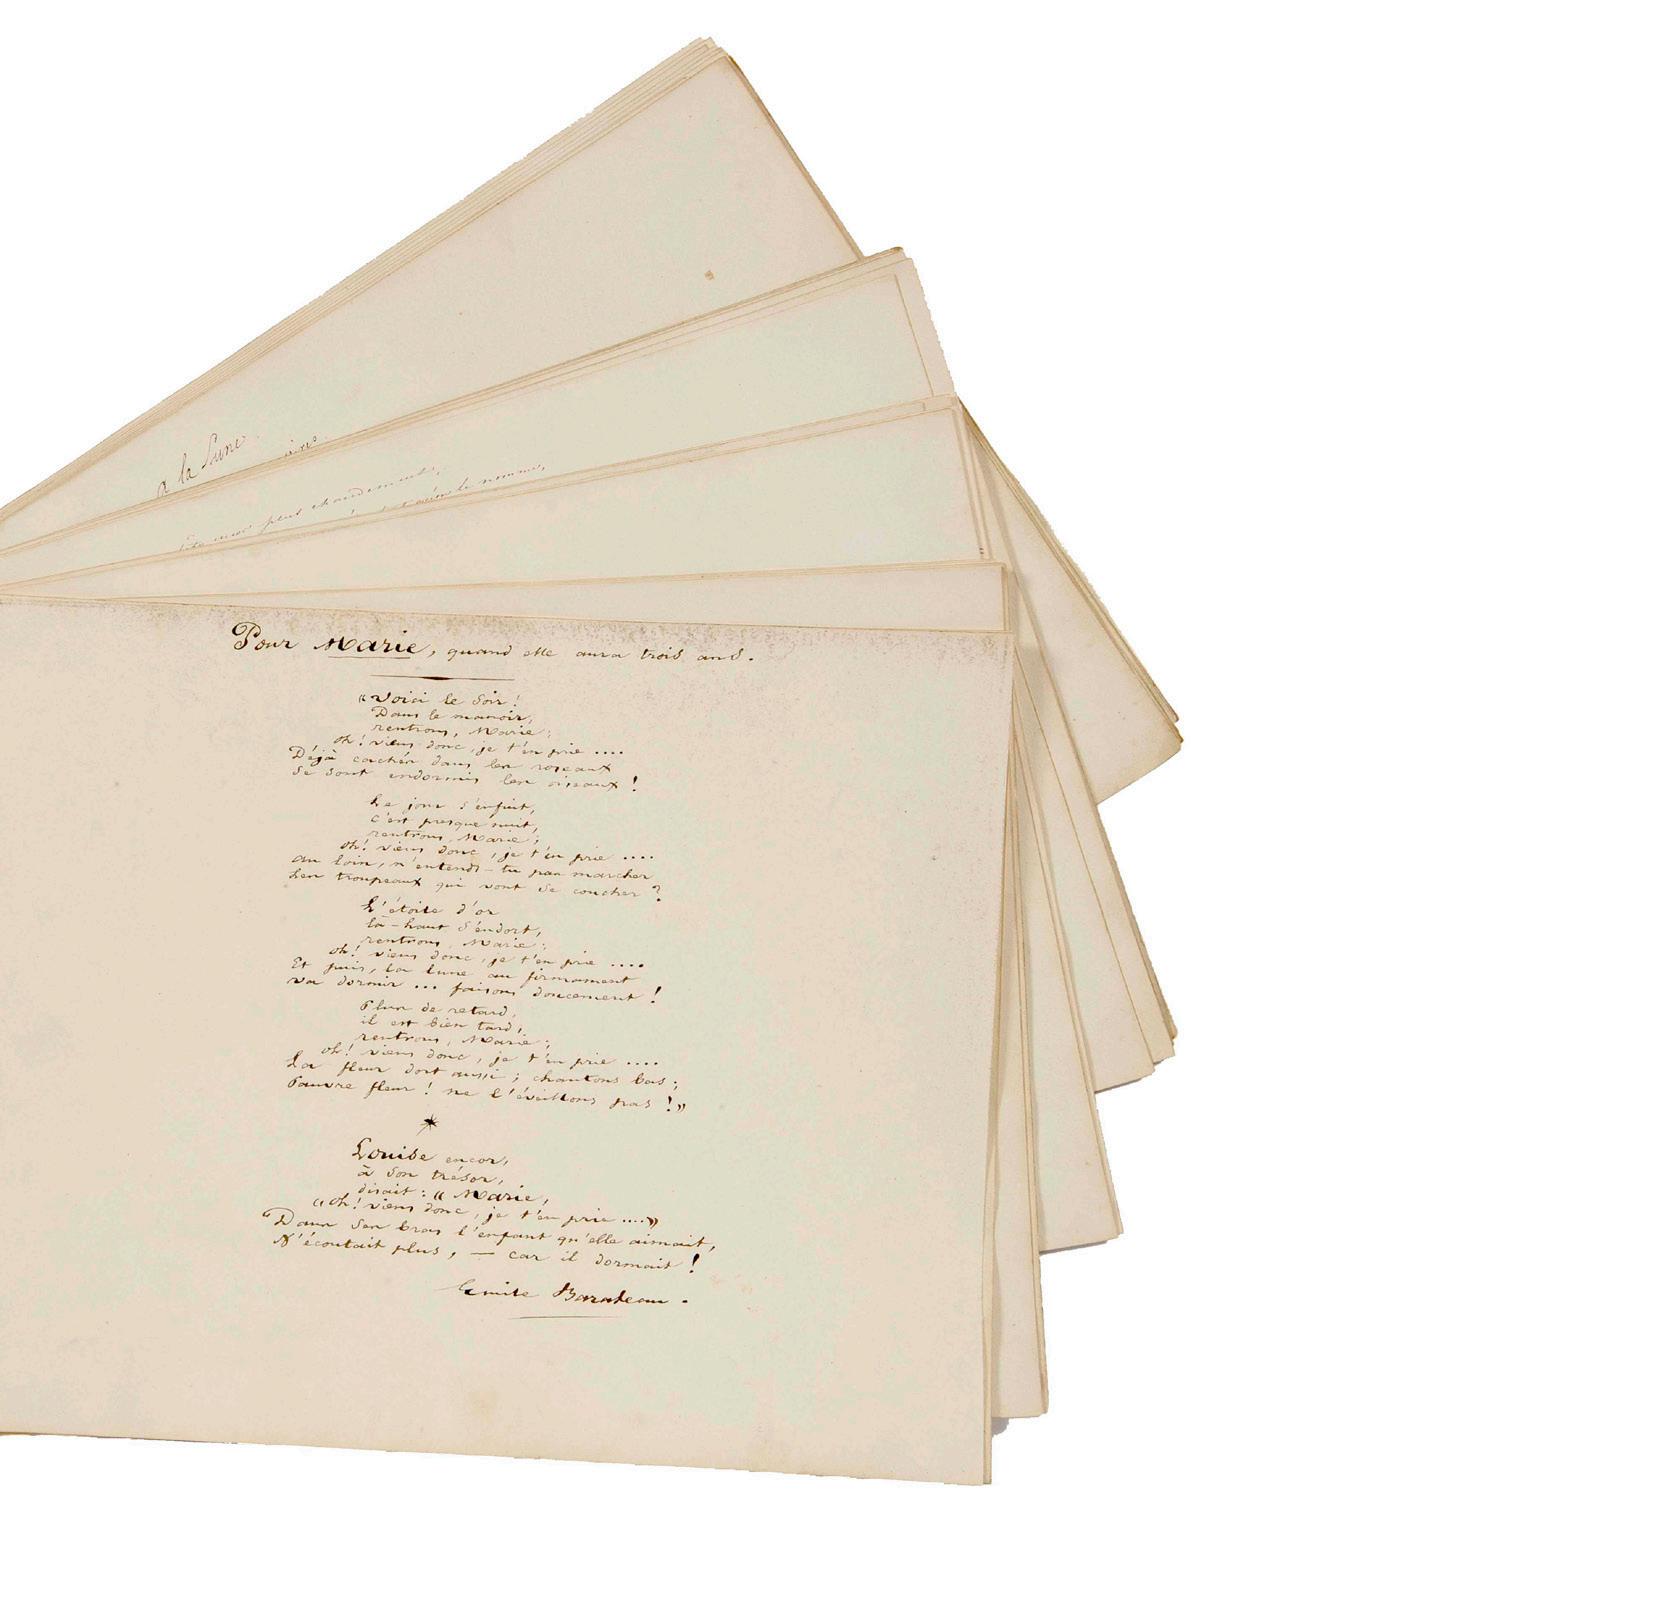 a la Lune.
plus chaudement,
nomme,
Pour Marie, quand elle aura trois ans.
"Voici le soir!
Dans le manoir,
rentrons, Marie;
oh! viens donc, je t'en prie ....
Déjà cachés dans les roseaux
se sont endormis les oiseaux!
Le jour s'enfuit,
c'est presque nuit,
rentrons, Marie;
oh! viens donc, je t'en prie ....
au loin, n'entends-tu pas marcher
Les troupeaux qui vont se coucher?
L'étoile d'or
là-haut s'endort,
rentrons, Marie;
oh! viens donc, je t'en prie ....
Et puis, la lune au firmament
va dormir ... faisons doucement!
Plus de retard,
il est bien tard,
rentrons, Marie;
oh! viens donc, je t'en prie ....
La fleur dort aussi; chantons bas;
Pauvre fleur! ne l'éveillons pas!"
*
Louise encor,
à son trésor,
disait: "Marie,
"oh! viens donc, je t'en prie ...."
Dans ses bras l'enfant qu'elle aimait,
N'écoutait plus, — car il dormait!
Emile Barateau.